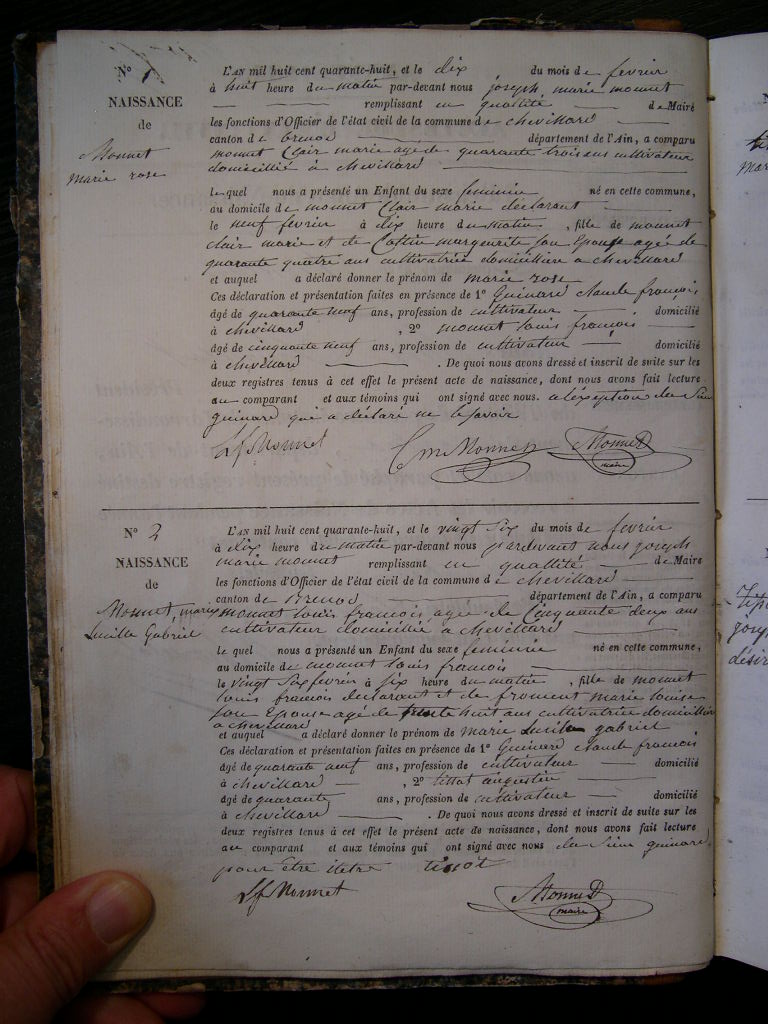 N° 1
NAISSANCE
de
Monnet
marie rose
L'AN mil huit cent quarante-huit, et le dix du mois de fevrier
à huit heure du matin par-devant nous joseph, marie monnet
remplissant en quallité de Maire
les fonctions d'Officier de l'état civil de la commune de chevillard
canton de brenod département de l'Ain, a comparu
monnet Clair marie age de quarante trois ans cultivateur
domicillié à chevillard
le quel nous a présenté un Enfant du sexe feminin né en cette commune,
au domicile de monnet Clair marie declarant
le neuf fevrier à dix heure du matin, fille de monnet
clair marie et de Cattin marguerite son Epouse agé de
quarante quatre ans cultivatrice domicillière a chevillard
et auquel a déclaré donner le prénom de marie rose
Ces déclaration et présentation faites en présence de 1° Guinard claude françois
âgé de quarante neuf ans, profession de cultivateur domicilié
à chevillard, 2° monnet louis françois
âgé de cinquante neuf ans, profession de cultivateur domicilié
à chevillard. De quoi nous avons dressé et inscrit de suite sur les
deux registres tenus à cet effet le présent acte de naissance, dont nous avons fait lecture
au comparant et aux témoins qui ont signé avec nous. a l'exception du Sieur
guinard qui a déclaré ne le savoir
Lf Monnet Cm Monnet Monnet
maire
N° 2
NAISSANCE
de
Monnet, marie
Lucille Gabriel
L'AN mil huit cent quarante-huit, et le vingt six du mois de fevrier
à dix heure du matin par-devant nous pardevant nous joseph
marie monnet remplissant en quallité de Maire
les fonctions d'Officier de l'état civil de la commune de chevillard
canton de Brenod département de l'Ain, a comparu
monnet louis francois agé de Cinquante deux ans
cultivateur domicillié a chevillard
le quel nous a présenté un Enfant du sexe feminin né en cette commune,
au domicile de monnet louis francois
le vingt six fevrier à six heure du matin, fille de monnet
louis francois declarant et de froment marie louise
son Epouse agé de trente huit ans cultivatrice domicillié
a chevillard
et auquel a déclaré donner le prénom de marie Lucile gabriel
Ces déclaration et présentation faites en présence de 1° Guinard claude francois
âgé de quarante neuf ans, profession de cultivateur domicilié
à chevillard, 2° tissot augustin
âgé de quarante ans, profession de cultivateur domicilié
à chevillard. De quoi nous avons dressé et inscrit de suite sur les
deux registres tenus à cet effet le présent acte de naissance, dont nous avons fait lecture
au comparant et aux témoins qui ont signé avec nous du Sieur guinard
pour être tissot
Lf Monnet Monnet
maire